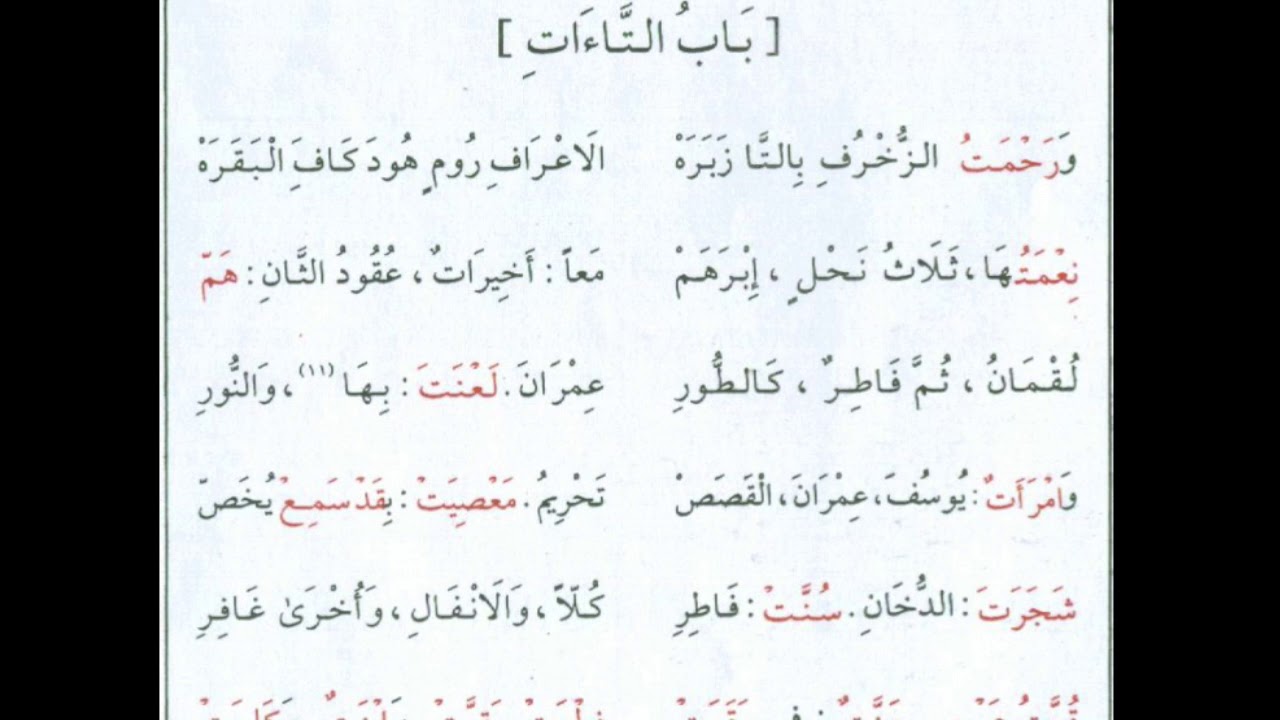 [ بَابُ التَّاءَاتِ ]
وَرَحْمَتُ الزُّخْرُفِ بِالتَّا زَبَرَهْ الَاعْرَافِ رُومٍ هُودَ كَافَ الْبَقَرَهْ
نِعْمَتُهَا، ثَلَاثُ نَحْلٍ ، إِبْرَهَمْ مَعاً : أَخِيرَاتٌ ، عُقُودُ الثَّانِ : هَمّ
لُقْمَانُ ، ثُمَّ فَاطِرٌ ، كَالطُّورِ عِمْرَانَ. لَعْنَتَ : بِهَا (١١) ، وَالنُّورِ
وَامْرَأَتٌ : يُوسُفَ، عِمْرَانَ، الْقَصَصْ تَحْرِيمُ. مَعْصِيَتْ : بِقَدْ سَمِعْ يُخَصّ
شَجَرَتَ : الدُّخَانِ. سُنَّتْ : فَاطِرِ كُلّاً ، وَالَانْفَالِ ، وَأُخْرَىٰ غَافِرِ